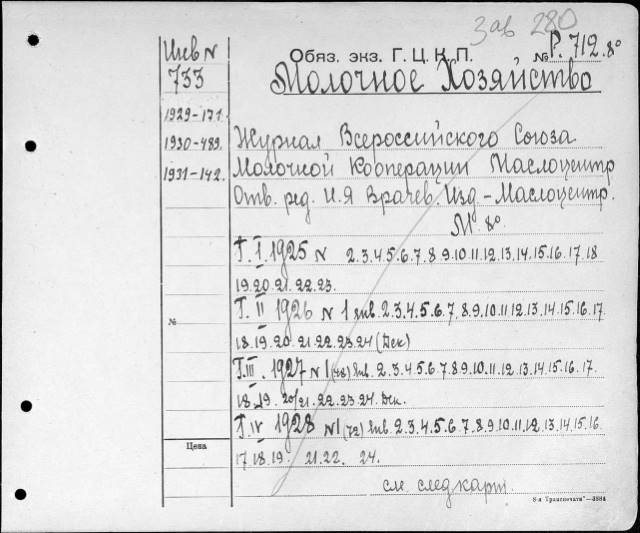 Зав 280
Инв N
733
Обяз. экз. Г.Ц.К.П. № Р. 712. 8°
Молочное Хозяйство
1929-171.
1930-489.
1931-142.
Журнал Всероссийского Союза
Молочной Кооперации Маслоцентр
Отв. ред. И.Я Врачев. Изд-Маслоцентр.
М. 8°
Т. I. 1925 N 2.3.4.5.6.7.8.9.10.11.12.13.14.15.16.17.18
19.20.21.22.23.
Т. II 1926 N 1 янв. 2.3.4.5.6.7.8.9.10.11.12.13.14.15.16.17.
№
18.19.20.21.22.23.24 (Дек)
Т. III. 1927 N 1 (48) янв. 2.3.4.5.6.7.8.9.10.11.12.13.14.15.16.17.
18.19. 20/21. 22.23.24. Дек.
Т. IV 1928 N1 (72) янв. 2.3.4.5.6.7.8.9.10.11.12.13.14.15.16.
Цена
17.18.19. 21.22. 24.
см. след карт.
8-я „Транспечати"—3884